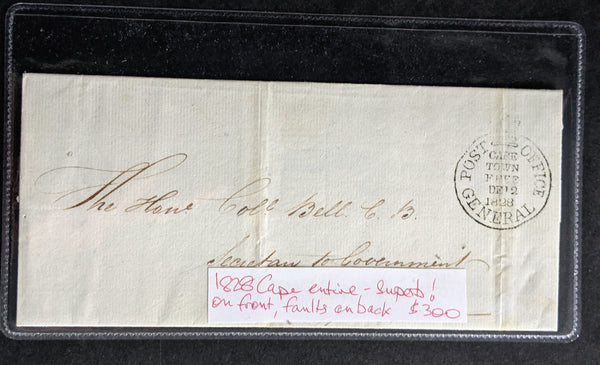 POST OFFICE
CAPE
TOWN
FREE
DE 12
1828
GENERAL
The Honē Colˡ Bell. C. B.
Secretary to Government
1828 Cape entire - superb!
on front, faults on back $300